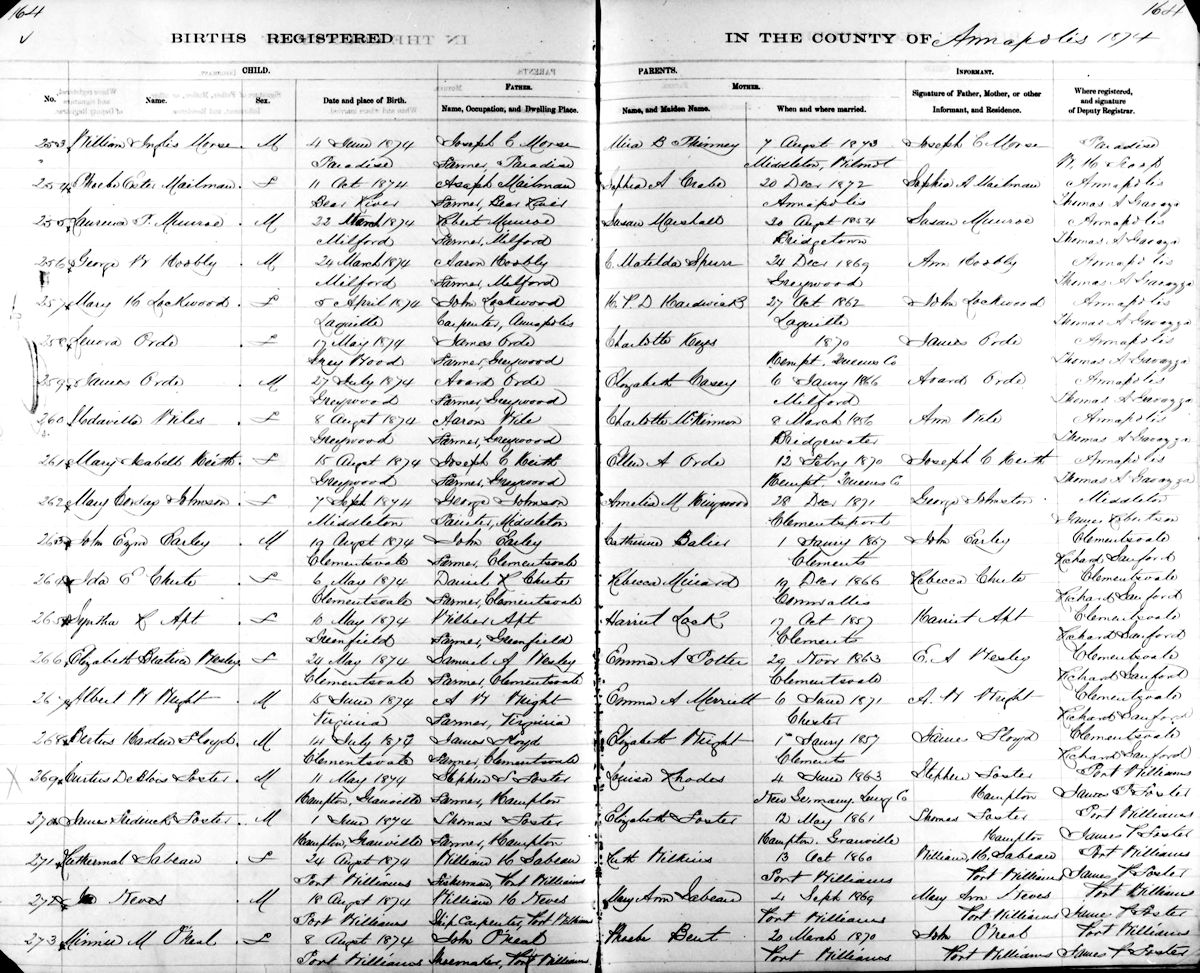 164 164
BIRTHS REGISTERED IN THE COUNTY OF Annapolis 1874
CHILD. PARENTS. INFORMANT.
FATHER. MOTHER.
No. Name. Sex. Date and place of Birth. Name, Occupation, and Dwelling Place. Name, and Maiden Name. When and where married. Signature of Father, Mother, or other Informant, and Residence. Where registered, and signature of Deputy Registrar.
253 William Inglis Morse M 4 June 1874 Joseph C Morse Mira B Phinney 7 August 1873 Joseph C Morse Paradise
Paradise Farmer, Paradise Middleton, Wilmot
254 Phoebe Ester Mailman F 11 Oct 1874 Asaph Mailman Sophia A Crabe 20 Decr 1872 Sophia A Mailman Annapolis
Bear River Farmer, Bear River Annapolis Thomas A Gavazza
255 Munroe M 22 March 1874 Robert Munroe Susan Marshall 30 August 1854 Susan Munroe Annapolis
Milford Farmer, Milford Bridgetown Thomas A Gavazza
256 George W M 24 March 1874 Aaron C. Matilda Spurr 24 Decr 1869 Ann Annapolis
Milford Farmer, Milford Greywood Thomas A Gavazza
257 Mary H Lockwood F 5 April 1874 John Lockwood H. P. D Hardwick 27 Oct 1862 John Lockwood Annapolis
Lequille Carpenter, Annapolis Lequille Thomas A Gavazza
258 Lenora Orde F 17 May 1874 James Orde Charlotte Keyes 1870 James Orde Annapolis
Grey Wood Farmer, Greywood Kempt, Queens Co Thomas A Gavazza
259 James Orde M 27 July 1874 Avard Orde Elizabeth Casey 6 Jaury 1866 Avard Orde Annapolis
Greywood Farmer, Greywood Milford Thomas A Gavazza
260 Wiles F 8 August 1874 Aaron Wile Charlotte McKinnon 8 March 1856 Ann Wile Annapolis
Greywood Farmer, Greywood Bridgewater Thomas A Gavazza
261 Mary Isabell Keith F 15 August 1874 Joseph C Keith Ellen A Orde 12 Febry 1870 Joseph C Keith Annapolis
Greywood Farmer, Greywood Kempt, Queens Co Thomas A Gavazza
262 Mary Johnson F 7 Seph 1874 George Johnson Amelia M 28 Decr 1871 George Johnston Middleton
Middleton Painter, Middleton Clementsport James Robertson
263 John Ezra Earley M 19 August 1874 John Earley Catherine Balier 1 Jaury 1867 John Earley Clementsvale
Clementsvale Farmer, Clementsvale Clements Richard Sanford
264 Ida E Chute F 6 May 1874 Daniel R Chute Rebecca Minard 19 Decr 1866 Rebecca Chute Clementsvale
Clementsvale Farmer, Clementsvale Cornwallis Richard Sanford
265 Syntha R Apt F 10 May 1874 Wilber Apt Harriet Lock 17 Oct 1857 Harriet Apt Clementsvale
Greenfield Farmer, Greenfield Clements Richard Sanford
266 Elizabeth Beatrice Wesley F 24 May 1874 Samuel A Wesley Emma A Potter 29 Novr 1863 E. A Wesley Clementsvale
Clementsvale Farmer, Clementsvale Clementsvale Richard Sanford
267 Albert W Wright M 15 June 1874 A W Wright Emma A Merriett 6 June 1871 A. W Wright Clementsvale
Virginia Farmer, Virginia Chester Richard Sanford
268 Harden Floyd M 14 July 1874 James Floyd Elizabeth Wright 1 Jaury 1857 James Floyd Clementsvale
Clementsvale Farmer, Clementsvale Clements Richard Sanford
269 Curtis Foster M 11 May 1874 Stephen S Foster Louisa Rhodes 4 June 1863 Stephen Foster Port Williams
Hampton, Granville Farmer, Hampton New Germany, Lung Co Hampton James P Foster
270 James Frederick Foster M 1 June 1874 Thomas Foster Elizabeth Foster 12 May 1861 Thomas Foster Port Williams
Hampton, Granville Farmer, Hampton Hampton, Granville Hampton James P Foster
271 Sabean F 24 August 1874 William H Sabean Ruth Wilkins 13 Oct 1860 William H. Sabean Port Williams
Port Williams Fisherman, Port Williams Port Williams Port Williams James P Foster
272 Neves M 18 August 1874 William H Neves Mary Ann Sabean 4 Seph 1869 Mary Ann Neves Port Williams
Port Williams Ship Carpenter, Port Williams Port Williams Port Williams James P Foster
273 Minnie M O'Neal F 8 August 1874 John O'Neal Phoebe Bent 20 March 1870 John O'Neal Port Williams
Port Williams Shoemaker, Port Williams Port Williams Port Williams James P Foster